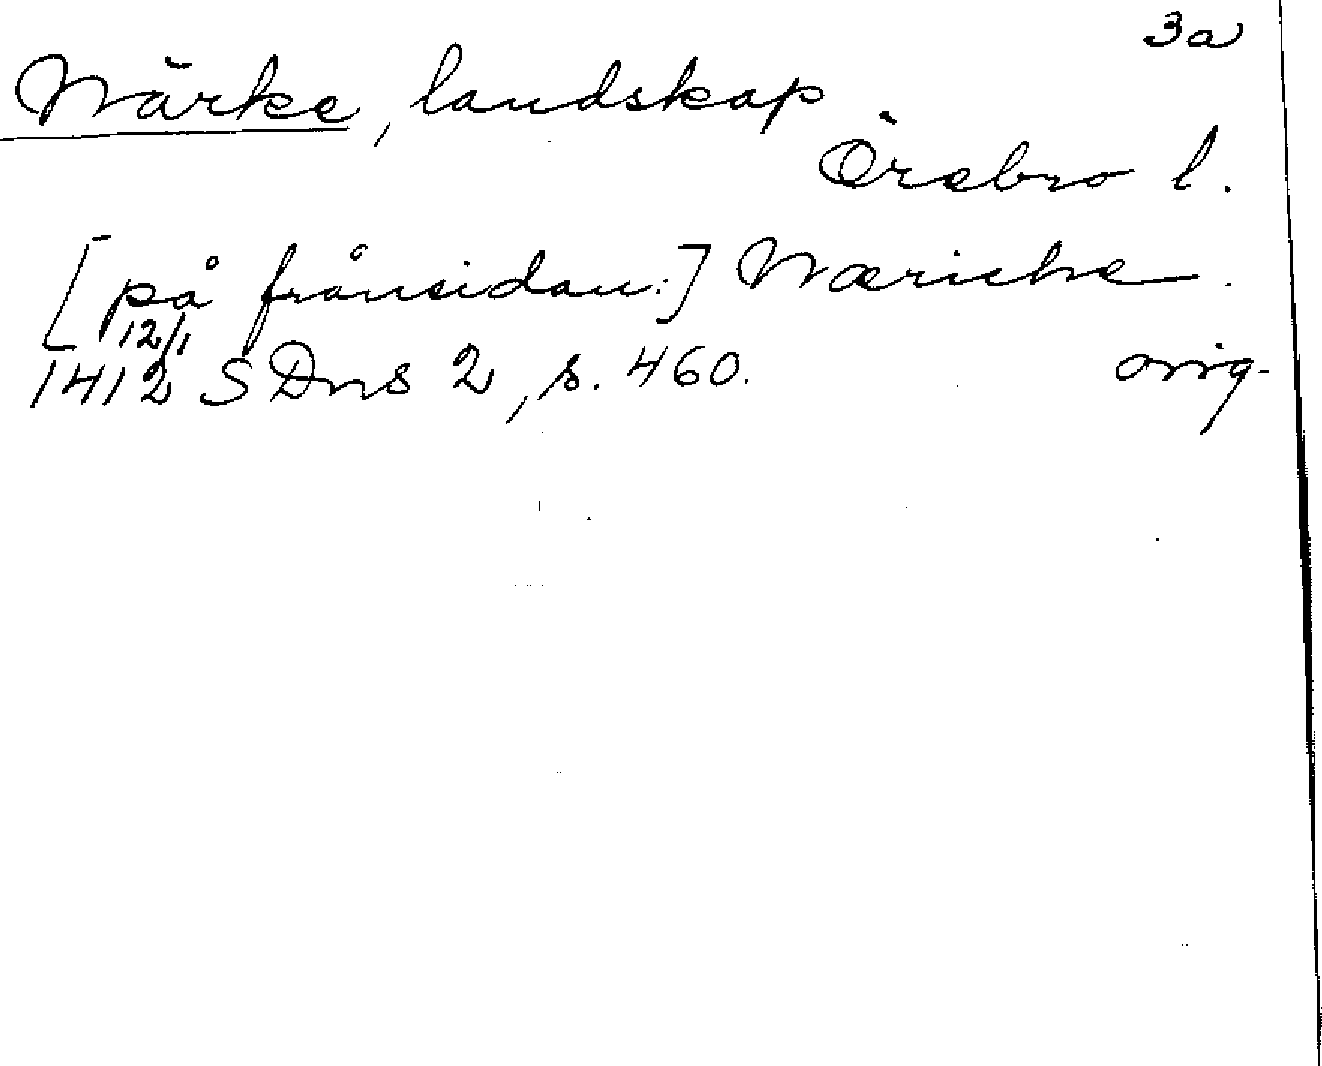 3a
Närke, landskap
Örebro l.
[på frånsidan:] Næriche.
12/1
1412 SDns 2, s. 460. orig.